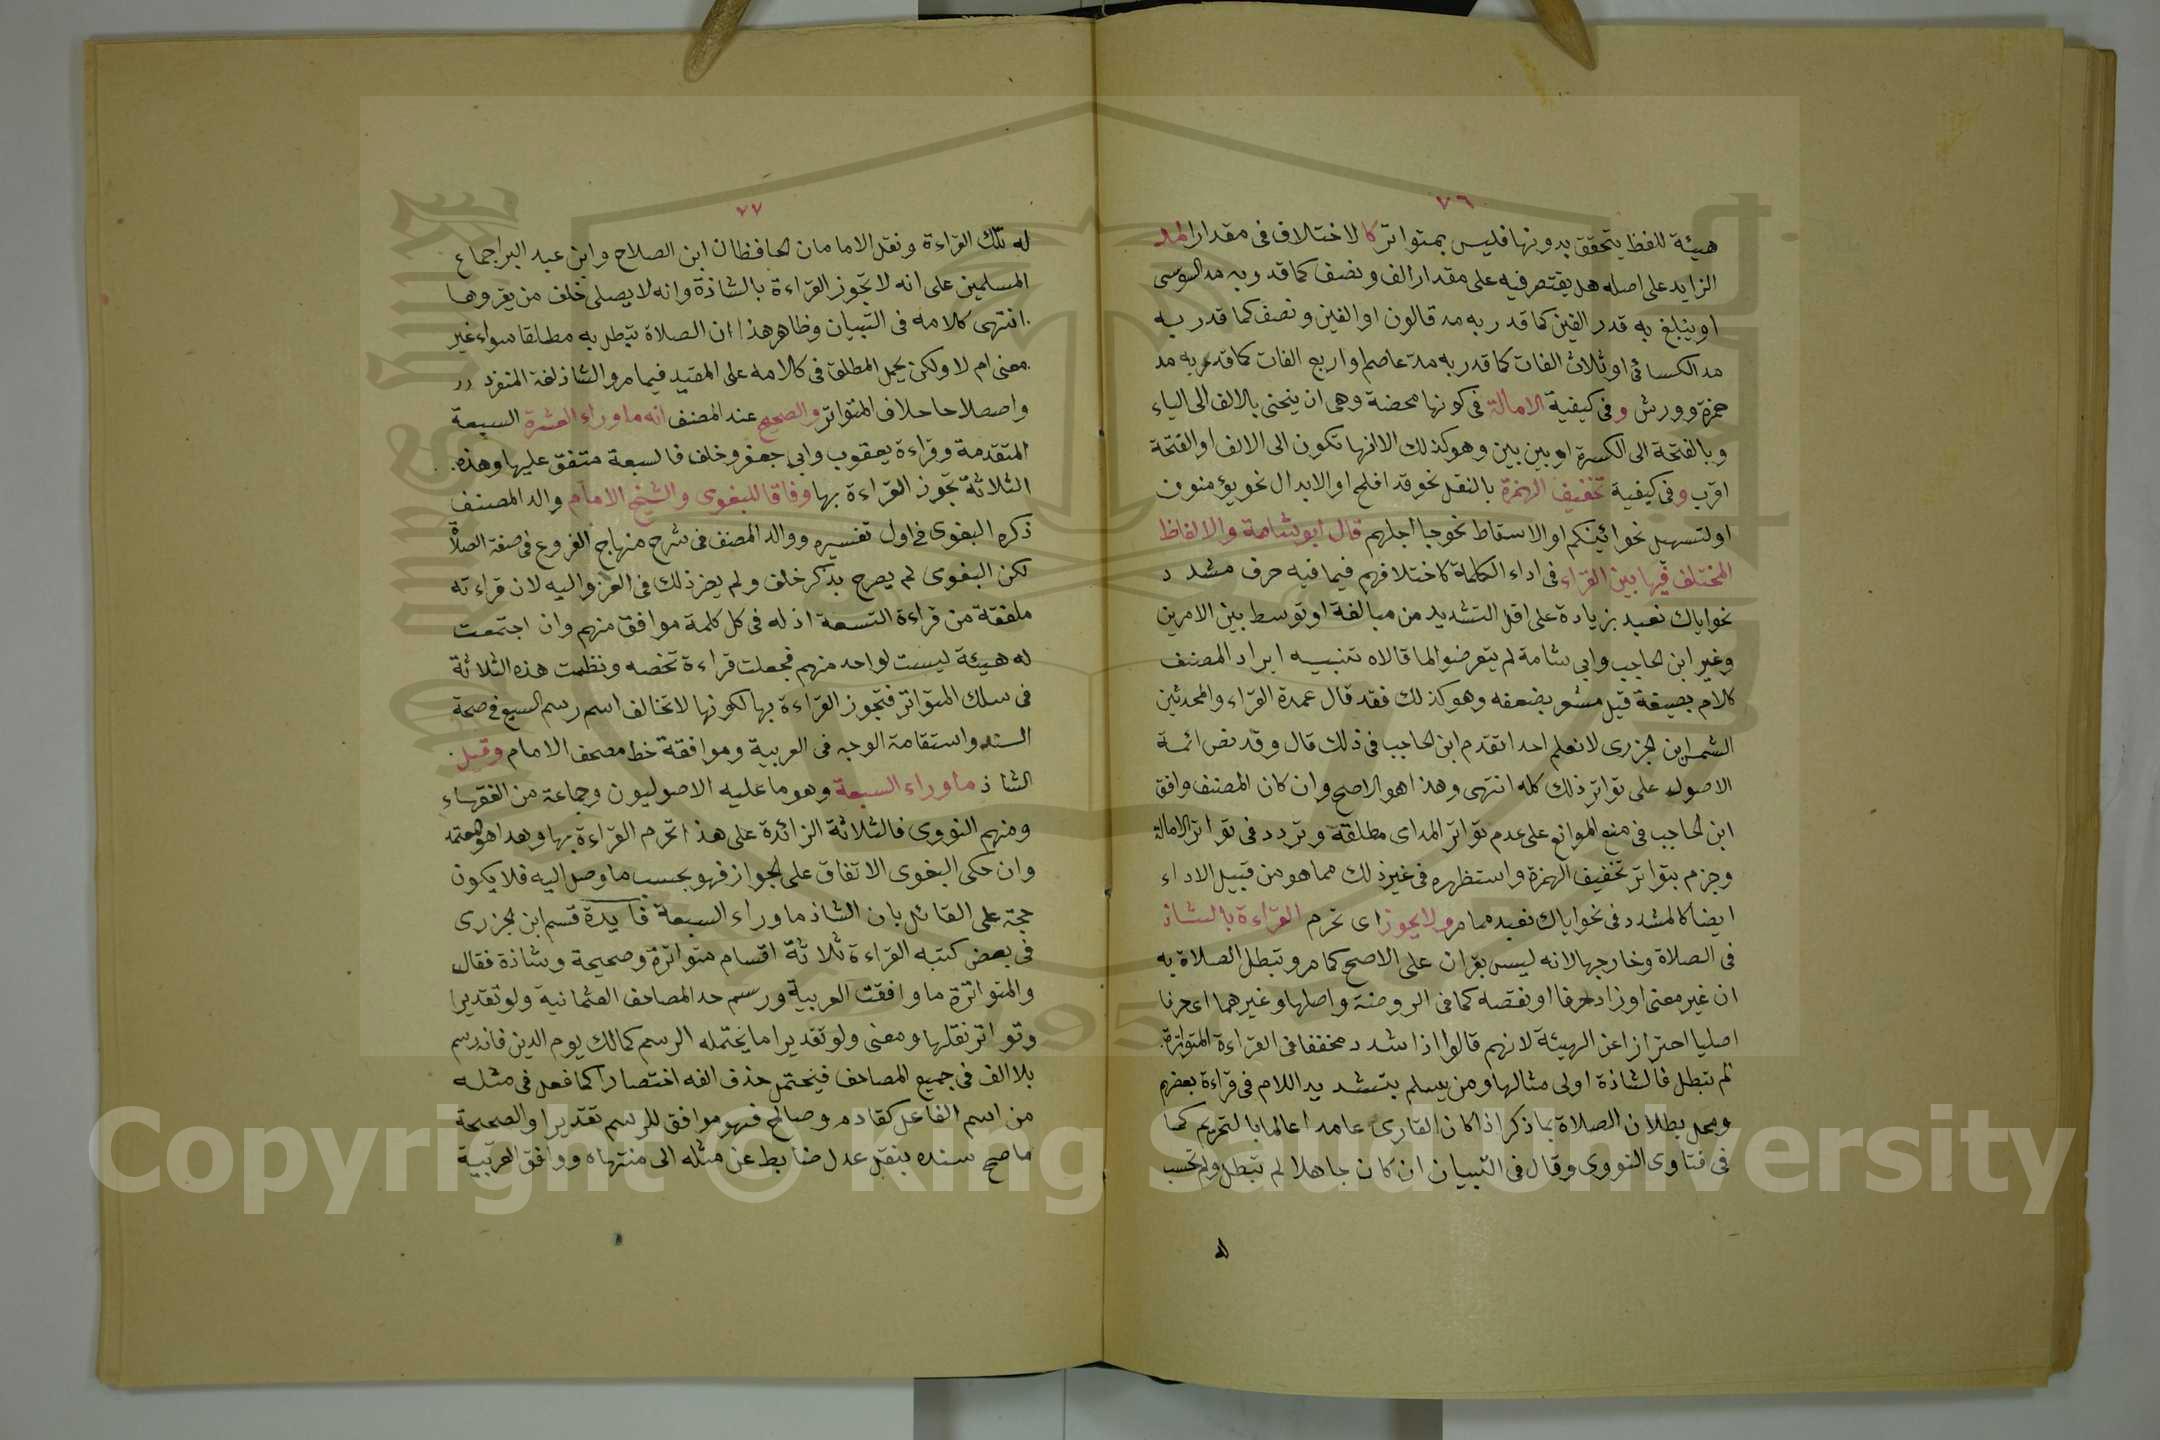 ٧٦
هيئة للفظ يتحقق بدونها فليس بمتواتر كالاختلاف في مقدار المد
الزايد على اصله هل يقتصر فيه على مقدار الف ونصف كما قدر به مد السوسى
او يبلغ به قدر الفين كما قدر به مد قالون او الفين ونصف كما قدر به
مد الكسائي او ثلاث الفات كما قدر به مد عاصم او اربع الفات كما قدر به مد
حمزة وورش وفى كيفية الامالة فى كونها محضة وهى ان ينحنى بالالف الى الياء
وبالفتحة الى الكسرة او بين بين وهو كذلك الا انها تكون الى الالف او الفتحة
اقرب وفى كيفية تخفيف الهمزة بالنقل نحو قد افلح او الابدال نحو يؤمنون
او لتسهيل نحو ائينكم او الاسقاط نحو جا اجلهم قال ابو شامة والالفاظ
المختلف فيها بين القراء فى اداء الكلمة كاختلافهم فيما فيه حرف مشدد
نحو اياك نعبد بزيادة على اقل التشديد من مبالغة او توسط بين الامرين
وغير ابن الحاجب وابى شامة لم يتعرضوا لما قالاه تنبيه ايراد المصنف
كلام بصيغة قيل مشعر بضعفه وهو كذلك فقد قال عمدة القراء والمحدثين
الشمس ابن الجزرى لا نعلم احدا تقدم ابن الحاجب فى ذلك قال وقد نص ائمة
الاصول على تواتر ذلك كله انتهى وهذا هو الاصح وان كان المصنف وافق
ابن الحاجب فى منع الموانع على عدم تواتر المد اى مطلقة وتردد فى تواتر الامالة
وجزم بتواتر تخفيف الهمزة واستظهره فى غير ذلك مما هو من قبيل الاداء
ايضا كالمشدد فى نحو اياك نعبد مما مر ولا يجوز اى تحرم القراءة بالشاذ
فى الصلاة وخارجها لانه ليس بقران على الاصح كما مر وتبطل الصلاة به
ان غير معنى او زاد حرفا او نقصه كما فى الروضة واصلها وغيرهما اى حرفا
اصليا احترازا عن الهيئة لانهم قالوا اذا شدد مخففا فى القراءة المتواترة
لم تبطل فالشاذة اولى مثالها ومن يسلم بتشديد اللام فى قراءة بعضهم
ومحل بطلان الصلاة بما ذكر اذا كان القارى عامدا عالما بالتحريم كما
فى فتاوى النووى وقال فى التبيان ان كان جاهلا لم تبطل ولم تحسب
له
٧٧
له تلك القراءة ونقل الامامان الحافظان ابن الصلاح وابن عبد البر اجماع
المسلمين على انه لا تجوز القراءة بالشاذة وانه لا يصلى خلف من يقروها
انتهى كلامه فى التبيان وظاهر هذا ان الصلاة تبطل به مطلقا سواء غير
معنى ام لا ولكن يحمل المطلق فى كلامه على المقيد فيما مر والشاذ لغة المنفرد
واصطلاحا خلاف المتواتر والصحيح عند المصنف انه ما وراء العشرة السبعة
المتقدمة وقراءة يعقوب وابى جعفر وخلف فالسبعة متفق عليها وهذه
الثلاثة تجوز القراءة بها وفاقا للبغوى والشيخ الامام والد المصنف
ذكره البغوى فى اول تفسيره ووالد المصنف فى شرح منهاج الفروع فى صفة الصلاة
لكن البغوى لم يصرح بذكر خلف ولم يضر ذلك فى العزو اليه لان قراءته
ملفقة من قراءة التسعة اذ له فى كل كلمة موافق منهم وان اجتمعت
له هيئة ليست لواحد منهم فجعلت قراءة تخصه ونظمت هذه الثلاثة
فى سلك المتواتر فتجوز القراءة بها لكونها لا تخالف اسم رسم السبع فى صحة
السند واستقامة الوجه فى العربية وموافقة خط مصحف الامام وقيل
الشاذ ما وراء السبعة وهو ما عليه الاصوليون وجماعة من الفقهاء
ومنهم النووى فالثلاثة الزائدة على هذا تحرم القراءة بها وهذا هو المعتمد
وان حكى البغوى الاتفاق على الجواز فهو بحسب ما وصل اليه فلا يكون
حجة على القائل بان الشاذ ما وراء السبعة فايدة قسم ابن الجزرى
فى بعض كتبه القراءة ثلاثة اقسام متواترة وصحيحة وشاذة فقال
والمتواترة ما وافقت العربية ورسم حد المصاحف العثمانية ولو تقديرا
وتواتر نقلها ومعنى ولو تقديرا ما يحتمله الرسم كمالك يوم الدين فانه رسم
بلا الف فى جميع المصاحف فيحتمل حذف الفه اختصارا كما فعل فى مثله
من اسم الفاعل كقادر وصالح فهو موافق للرسم تقديرا والصحيحة
ما صح سنده بنقل عدل ضابط عن مثله الى منتهاه ووافق العربية
Copyright © King Saud University